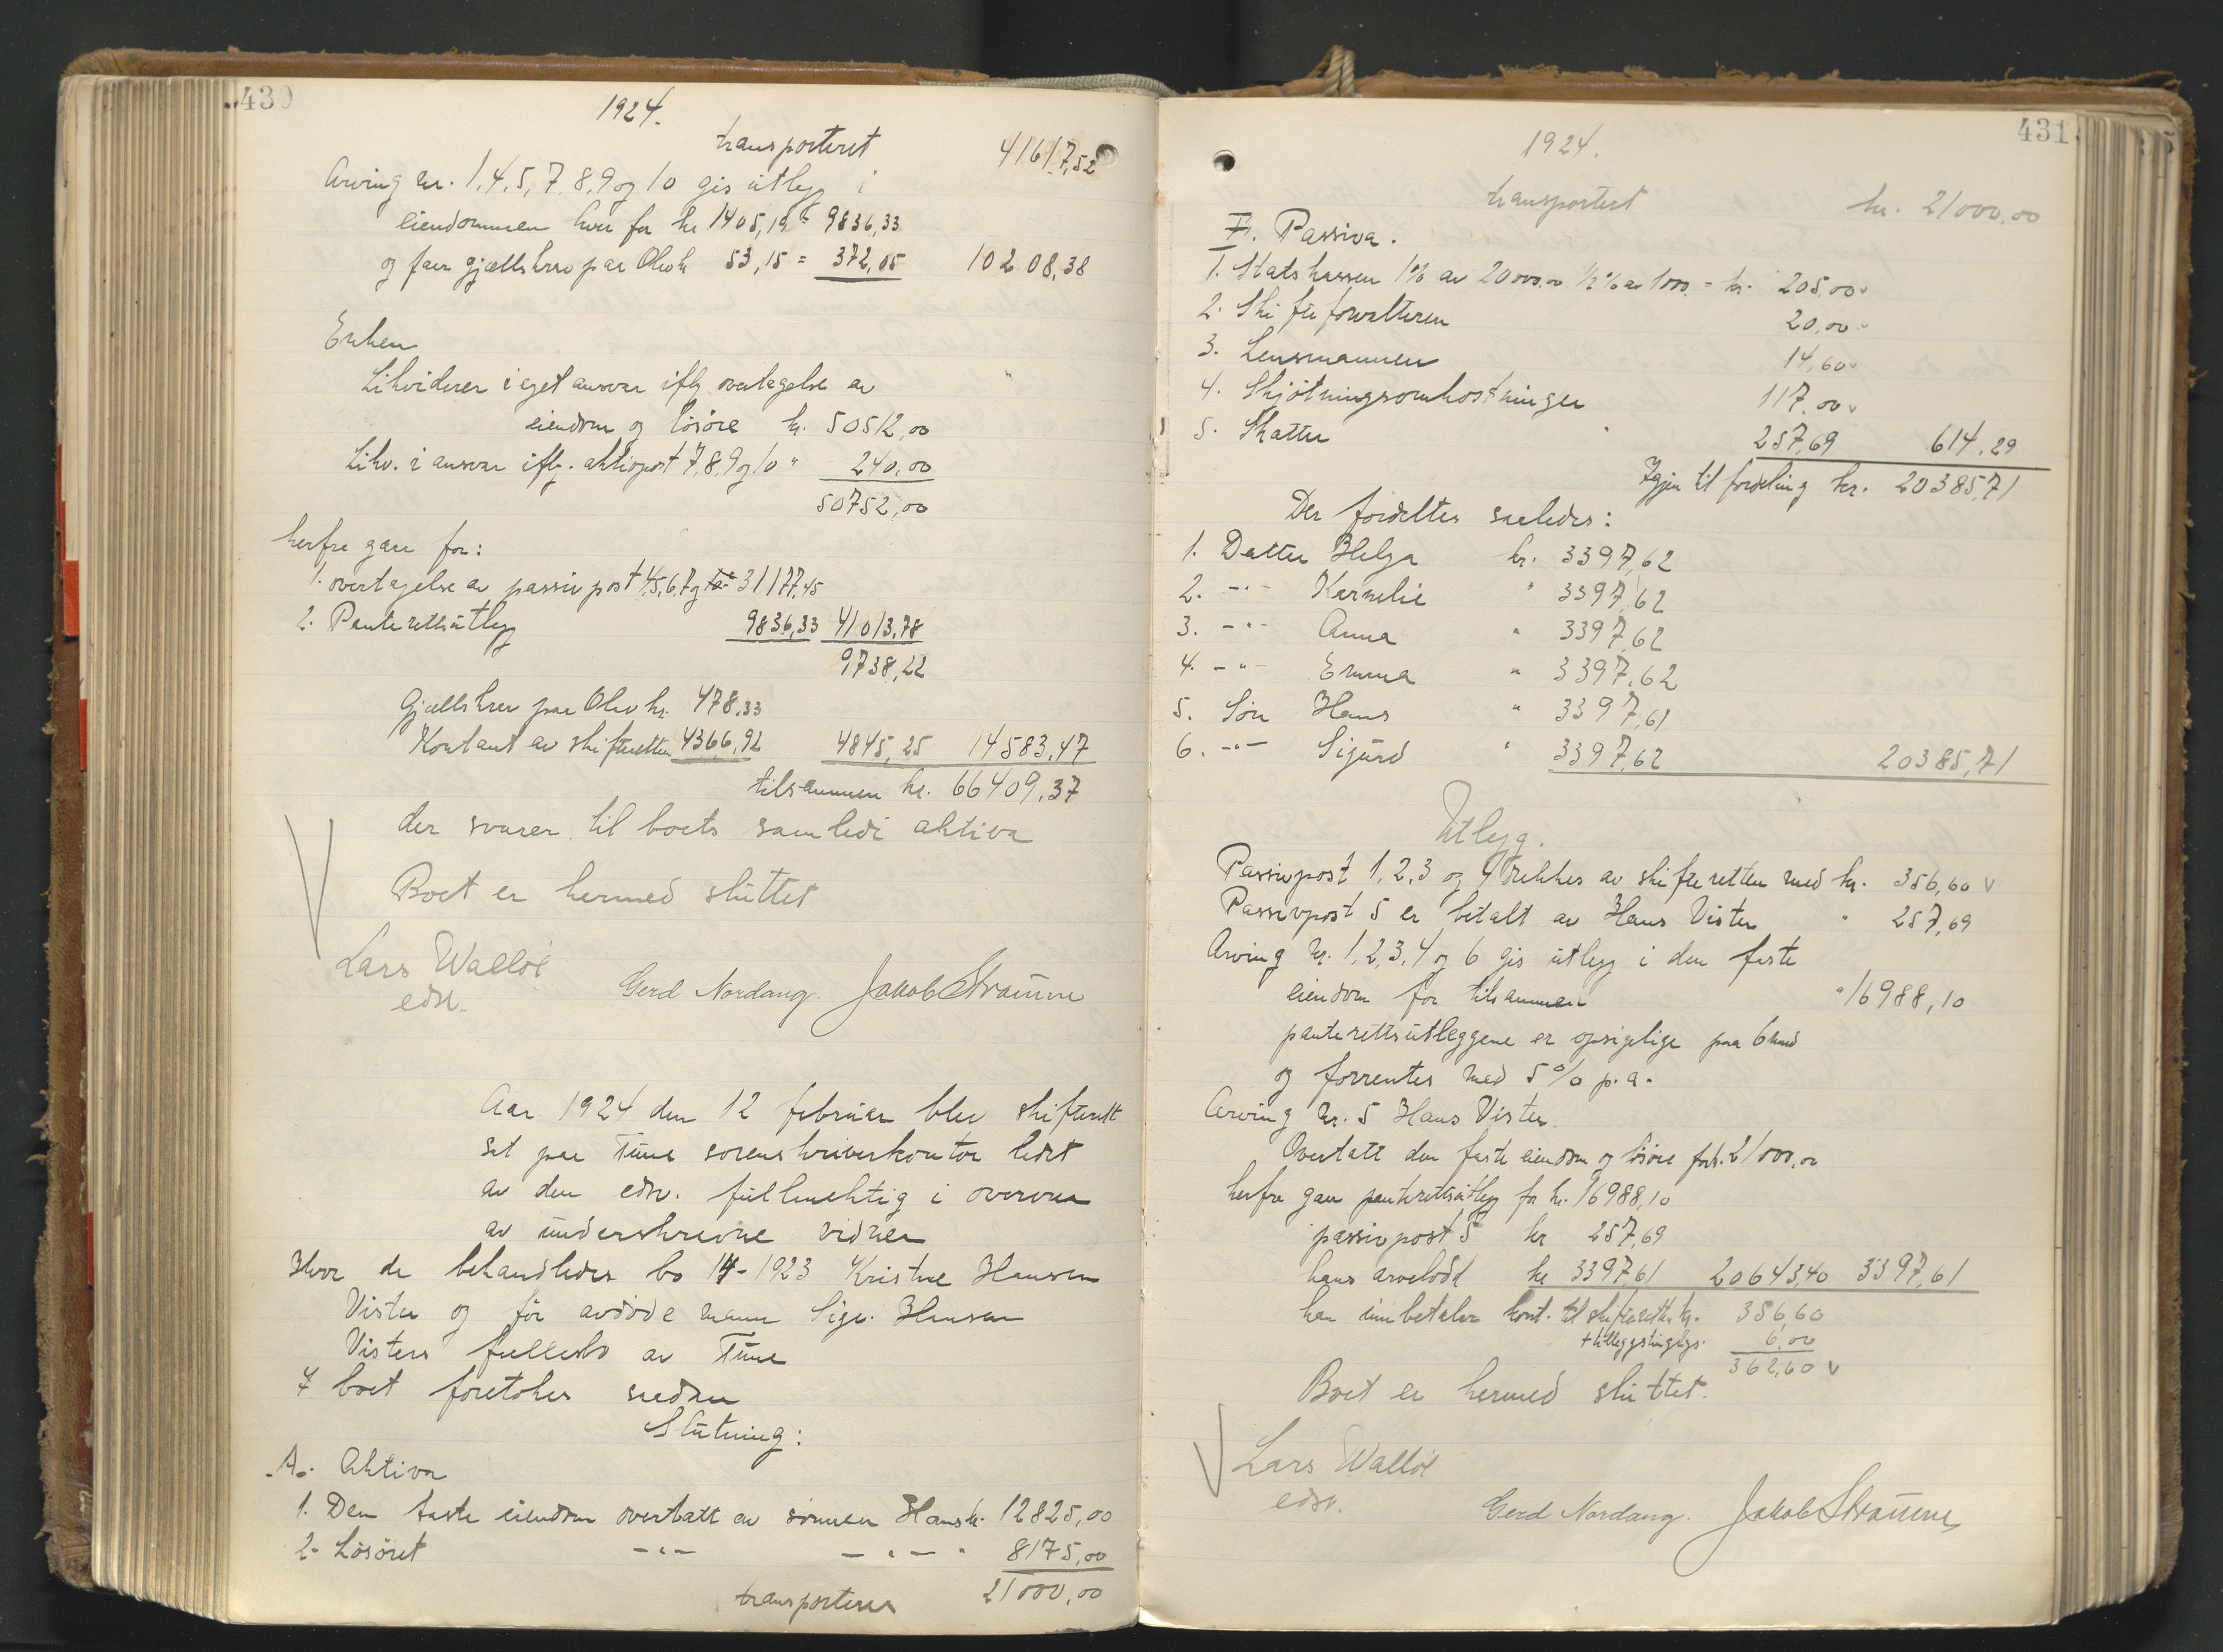 430
1924.
transporteret 41617,52
Arving nr. 1, 4, 5, 7, 8, 9 og 10 gis utlegg i
eiendommen hver for kr 1405,19 = 9836,33
og faar gjællskrav paa Olav kr 53,15 = 372,05 10208,38
Enken
Likviderer i eget ansvar ifly overtagelse av
eiendom og lösöre kr. 50512,00
Likv. i ansvar ifly. aktivpost 7, 8, 9 og 10 " 240,00
50752,00
herfra gaar for:
1. overtagelse av passivpost 4, 5, 6, 7 og 31177,45
2. Panterettsutlegg 9836,33 41013,78
9738,22
Gjællskrav paa Olav kr. 478,33
Kontant av skifteretten 4366,92 4845,25 14583,47
tilsammen kr. 66409,37
der svarer til boets samlede aktiva
Boet er hermed sluttet
Lars Walløe
edsv.
Gerd Nordang. Jakob Straume
Aar 1924 den 12 februar blev skifterett
sat paa Tune sorenskriverkontor ledet
av den edsv. fullmektig i overvær
av underskrevne vidner
Hvor da behandledes bo 14-1923 Kristine Hansen
Vister og før avdöde mann Sigv. Hansen
Visters fellesbo av Tune
I boet foretokes saadan
Slutning:
A. Aktiva
1. Den faste eiendom overtatt av sönnen Hans kr. 12825,00
2. Lösöret -"- -"- " 8175,00
transporteres 21000,00
431
1924.
transportert kr. 21000,00
F. Passiva.
1. Statskassen 1% av 20000,00 ½% av 1000. = kr. 205,00
2. Skifteforvalteren 20,00
3. Lensmannen 14,60
4. Skjötningsomkostninger 117,00
5. Skatter 257,69 614,29
Igjen til fordeling kr. 20385,71
Der fordeltes saaledes:
1. Datter Helga kr. 3397,62
2. -"- Karnelie " 3397,62
3. -"- Anna " 3397,62
4. -"- Emma " 3397,62
5. Sön Hans " 3397,61
6. -"- Sigurd " 3397,62 20385,71
Utlegg.
Passivpost 1, 2, 3 og 4 dekkes av skifteretten med kr. 356,60
Passivpost 5 er betalt av Hans Vister " 257,69
Arving nr. 1, 2, 3, 4 og 6 gis utlegg i den faste
eiendom for tilsammen " 16988,10
panterettsutleggene er opsigelige paa 6 mnd
og forrentes med 5% p.a.
Arving nr. 5 Hans Vister
Overtatt den faste eiendom og lösöre for kr. 21000,00
herfra gaar panterettsutlegg for kr. 16988,10
passivpost 5 kr 257,69
hans arvelodd kr 3397,61 20643,40 3397,61
han innbetaler kont. til skifteretten kr. 356,60
+ tilleggstinglys. 6,00
362,60
Boet er hermed sluttet.
Lars Walløe
edsv.
Gerd Nordang. Jakob Straume